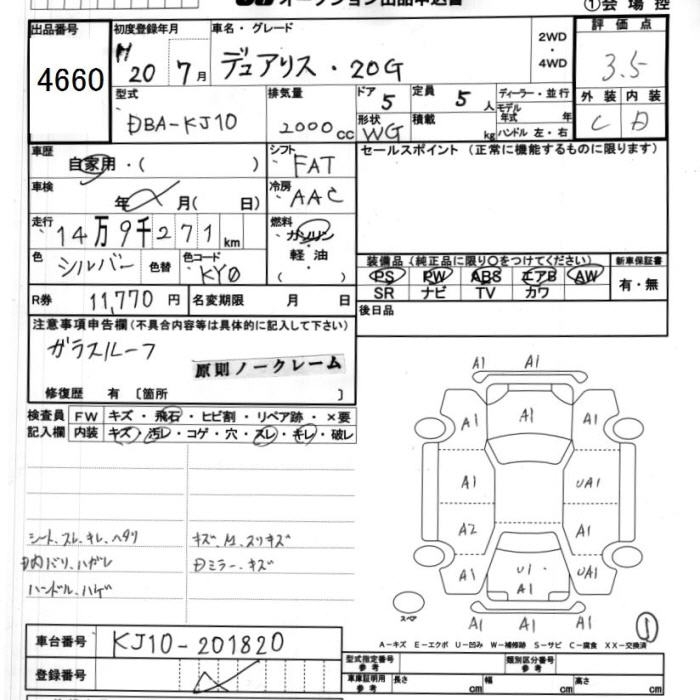 オークション出品申込書 ①会場控
出品番号 初度登録年月 車名・グレード 2WD・4WD 評価点
4660 H20 7月 デュアリス・20G 3.5
型式 排気量 ドア 5 定員 5人 ディーラー・並行 外装 内装
DBA-KJ10 2000cc 形状 WG 積載 kg モデル年式 年式 ハンドル 左・右 C D
車歴 シフト セールスポイント (正常に機能するものに限ります)
自家用・( ) FAT
車検 冷房
年 月( 日) AAC
走行 燃料
14万9千271km ガソリン・軽油・( )
色 シルバー 色替 色コード KY0
装備品 (純正品に限り○をつけてください) 新車保証書
PS PW ABS エアB AW 有・無
SR ナビ TV カワ
R券 11,770円 名変期限 月 日 後日品
注意事項申告欄(不具合内容等は具体的に記入して下さい)
ガラスルーフ
原則ノークレーム
修復歴 有 〔箇所 〕
検査員 FW キズ・飛石・ヒビ割・リペア跡・×要
記入欄 内装 キズ・汚レ・コゲ・穴・スレ・キレ・破レ
シート、スレ、キレ、ヘタリ キズ、M、スリキズ
D内バリ、ハガレ Dミラー、キズ
ハンドル、ハゲ
A1 A1
A1 A1 A1
A1 UA1
A2 A1
A1 U1 UA1
A1
スペア A1 A1 A1
A-キズ E-エクボ U-凹み W-補修跡 S-サビ C-腐食 XX-交換済
車台番号 KJ10-201820
登録番号
型式指定番号 参考 類別区分番号 参考
車庫証明用 参考 長さ cm 幅 cm 高さ cm